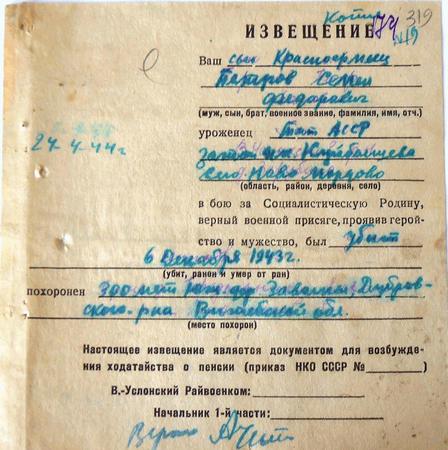 Копия
74 319
№19
ИЗВЕЩЕНИЕ
Ваш сын Красноармеец
Петров Семен
Федорович
(муж, сын, брат, военное звание, фамилия, имя, отч.)
уроженец Тат АССР
24.4.44г
им. Куйбышева
село Ново Мордово
(область, район, деревня, село)
в бою за Социалистическую Родину,
верный военной присяге, проявив герой-
ство и мужество, был убит
6 Декабря 1943г.
(убит, ранен и умер от ран)
похоронен 300 мет Дубров-
ского р-на Витебской обл.
(место похорон)
Настоящее извещение является документом для возбужде-
ния ходатайства о пенсии (приказ НКО СССР №
В.-Услонский Райвоенком:
Начальник 1-й части:
Верно